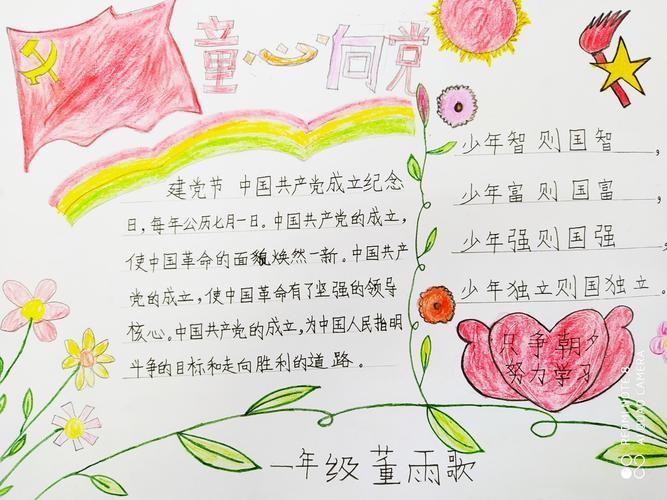 童心向党
建党节 中国共产党成立纪念
日，每年公历七月一日。中国共产党的成立，
使中国革命的面貌焕然一新。中国共产
党的成立，使中国革命有了坚强的领导
核心。中国共产党的成立，为中国人民指明
斗争的目标和走向胜利的道路。
少年智则国智，
少年富则国富，
少年强则国强，
少年独立则国独立。
只争朝夕
努力学习
一年级董雨歌
REDMI NOTE 8
AI QUAD CAMERA